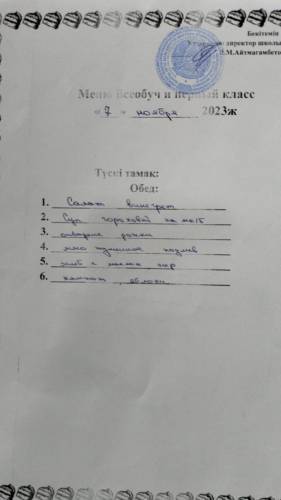 Бекітемін
директор школы
Е.М.Айтмагамбетов
Меню Всеобуч и первый класс
«7» ноября 2023ж
Түскі тамақ:
Обед:
1. Салат винегрет
2. Суп гороховый на м/б
3. отварные рожки
4. мясо тушеное подлив
5. хлеб с маслом сыр
6. компот, яблоки